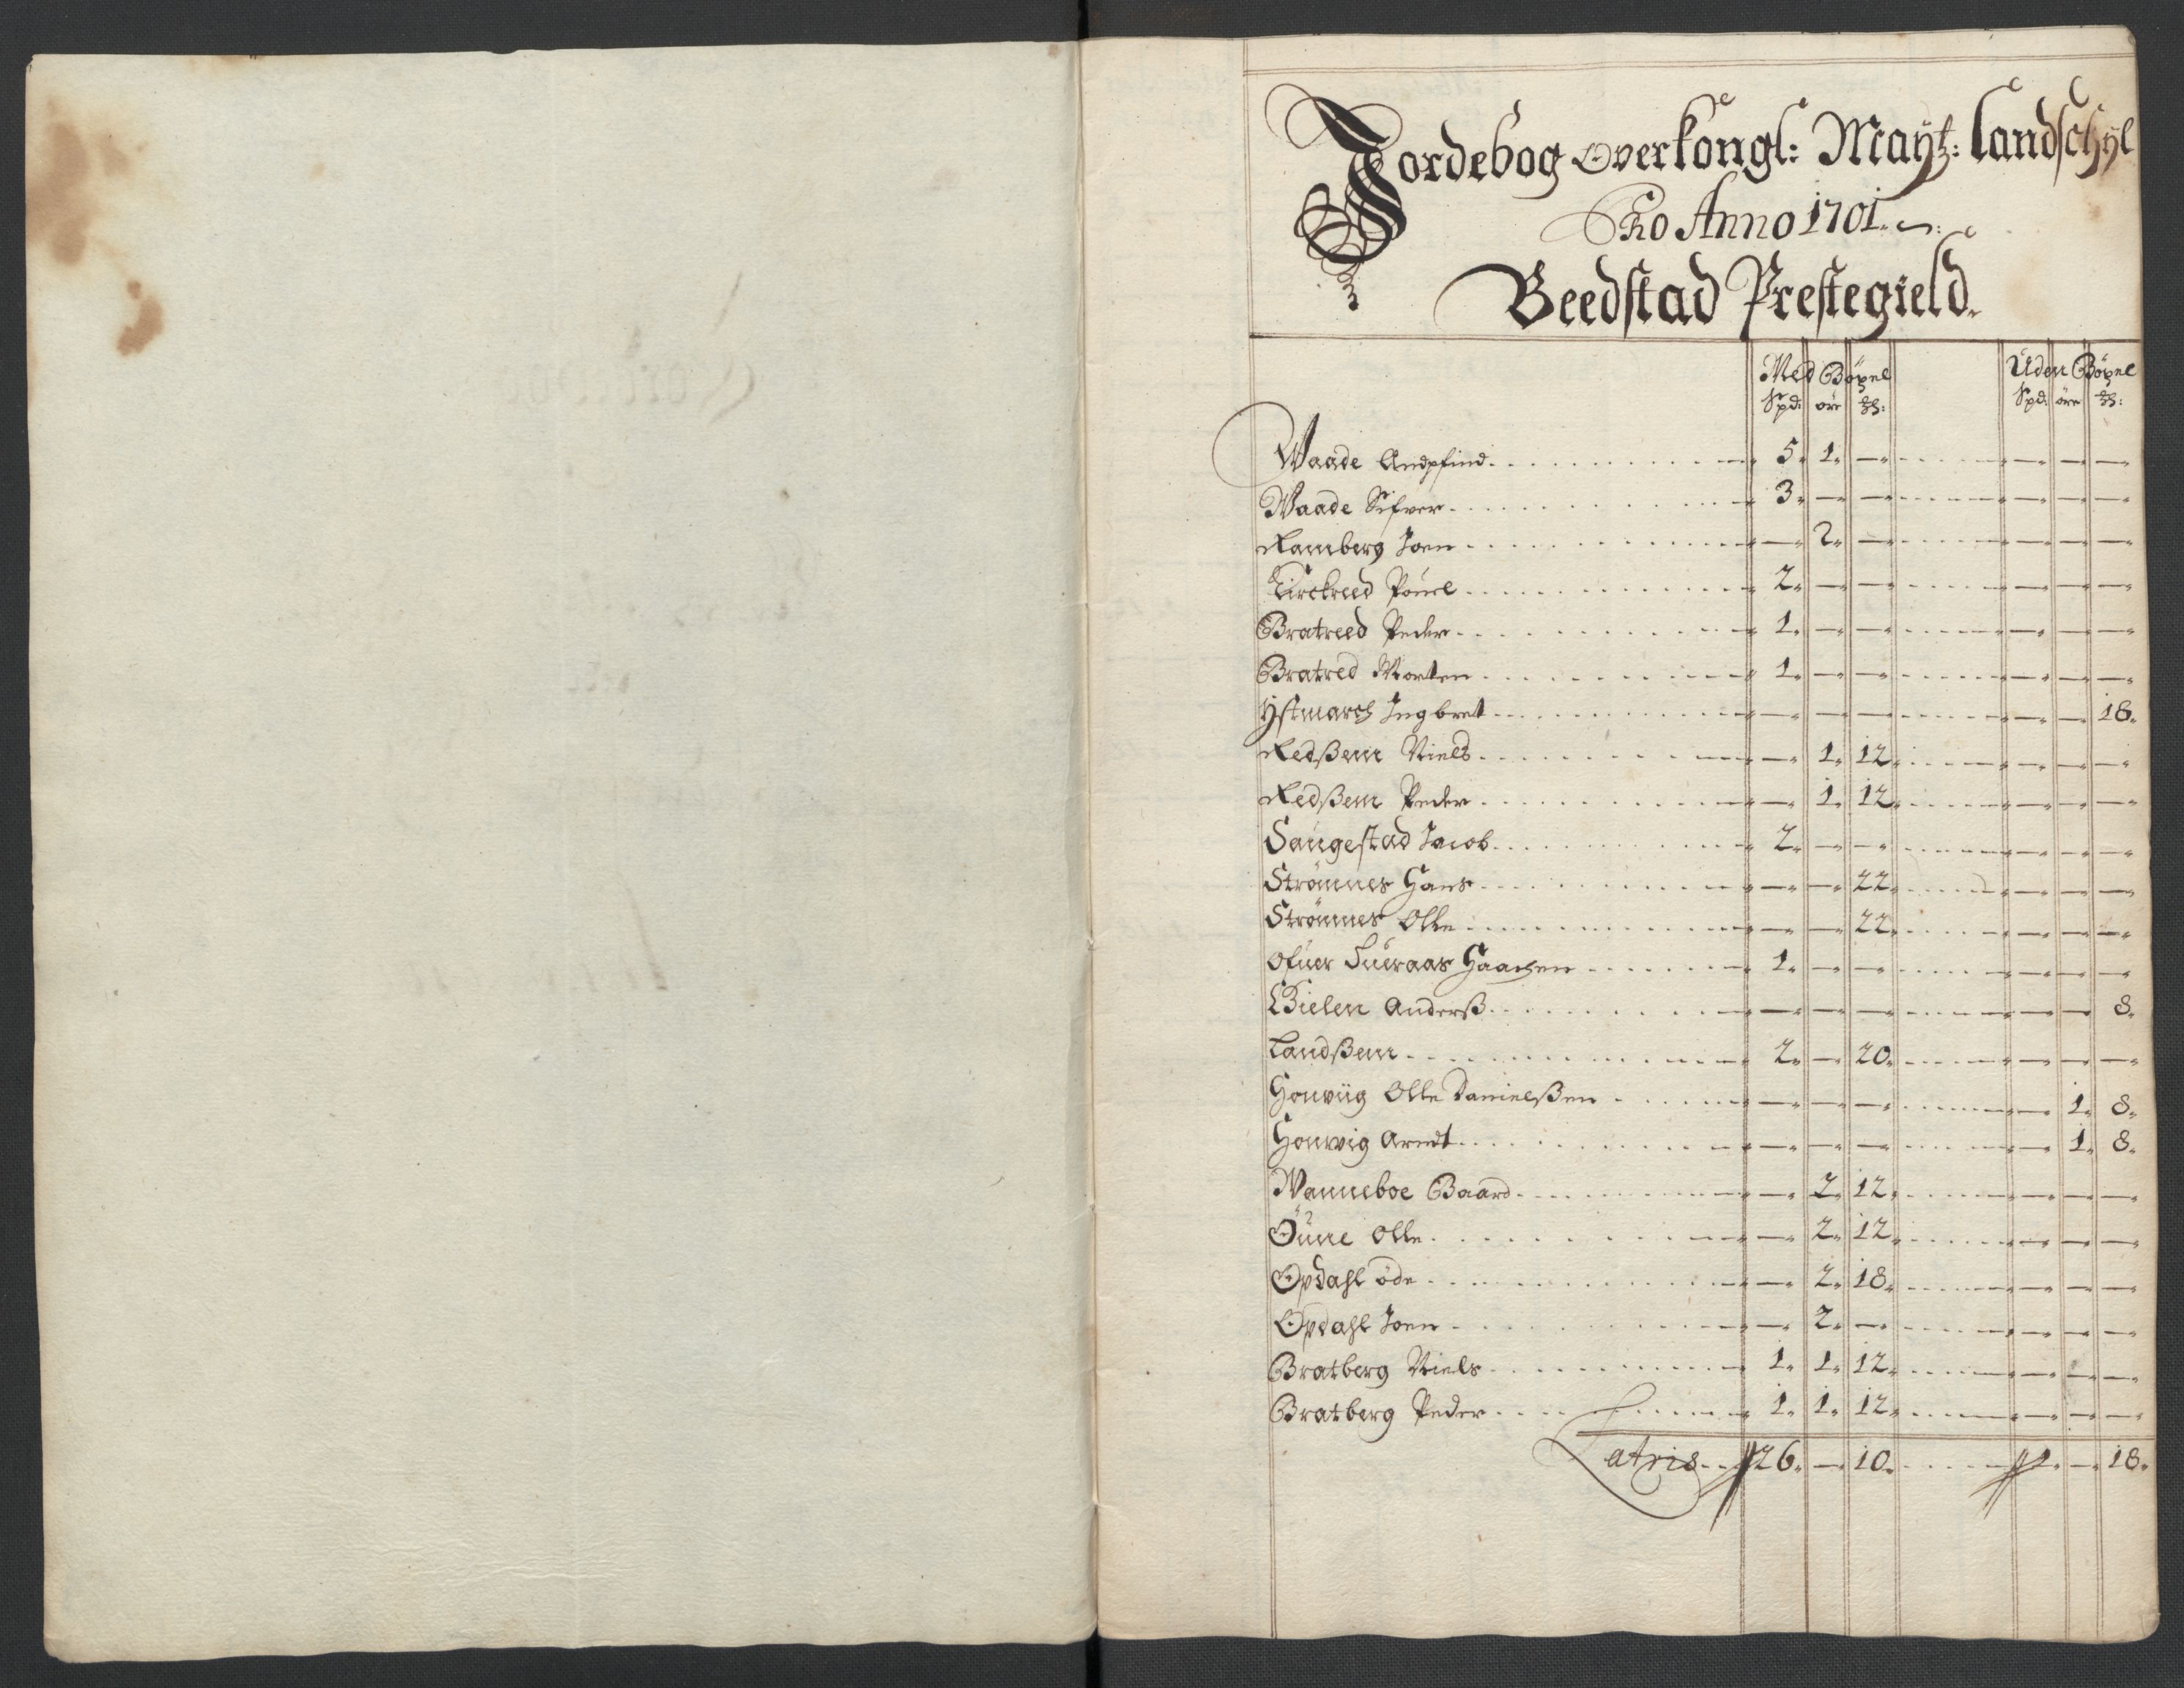 Jordebog Over Kongl: Maytz: Landschyl
Pro Anno 1701.
Beedstad Prestegield.
Med Böxel Uden Böxel
Spd: öre Spd: öre
Waade Andpfind 5. 1. — — — —
Waade Sifver 3. — — — — —
Ramberg Joen — 2. — — — —
Kirckreed Pouel 2. — — — — —
Bratreed Peder 1. — — — — —
Bratred Morten 1. — — — — —
Ystmarch Ingbret — — — — — 18.
Redßem Niels — 1. 12. — — —
Redßem Peder — 1. 12. — — —
Saugestad Jacob 2. — — — — —
Strömnes Hans — — 22. — — —
Strömnes Olle — — 22. — — —
Ofuer Sueraas Haachen 1. — — — — —
Bielen Anderß — — — — — 8.
Landßem 2. — 20. — — —
Honviig Olle Danielßen — — — — 1. 8.
Honvig Arendt — — — — 1. 8.
Wanneboe Baard — 2. 12. — — —
Öune Olle — 2. 12. — — —
Opdahl öde — 2. 18. — — —
Opdahl Joen — 2. — — — —
Bratberg Niels 1. 1. 12. — — —
Bratberg Peder 1. 1. 12. — — —
Latris 26. — 10. 1. — 18.